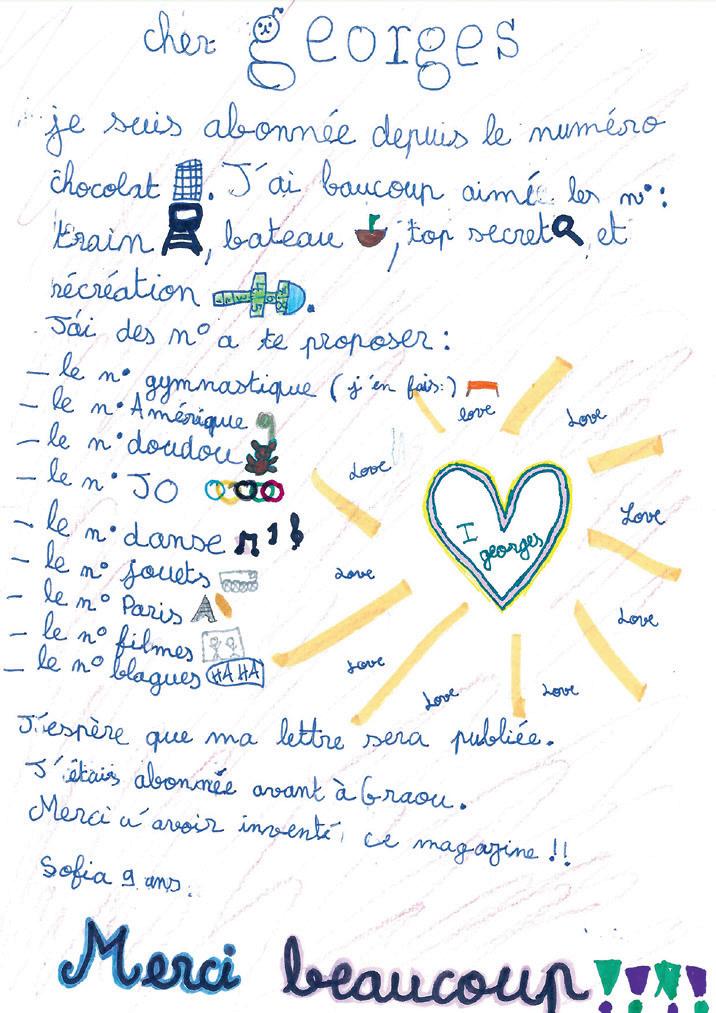 cher georges
je suis abonnée depuis le numéro
chocolat . J'ai baucoup aimée les n° :
train , bateau , top secret et
récréation .
J'ai des n° a te proposer :
– le n° gymnastique ( j'en fais:)
– le n° Amérique
– le n° doudou
– le n° JO
– le n° danse
– le n° jouets
– le n° Paris
– le n° filmes
– le n° blagues HA HA
love
Love
Love
Love
I georges
Love
Love
Love
Love
Love
J'espère que ma lettre sera publiée.
J'étais abonnée avant à Graou.
Merci d'avoir inventé ce magazine !!
Sofia 9 ans.
Merci beaucoup !!!!